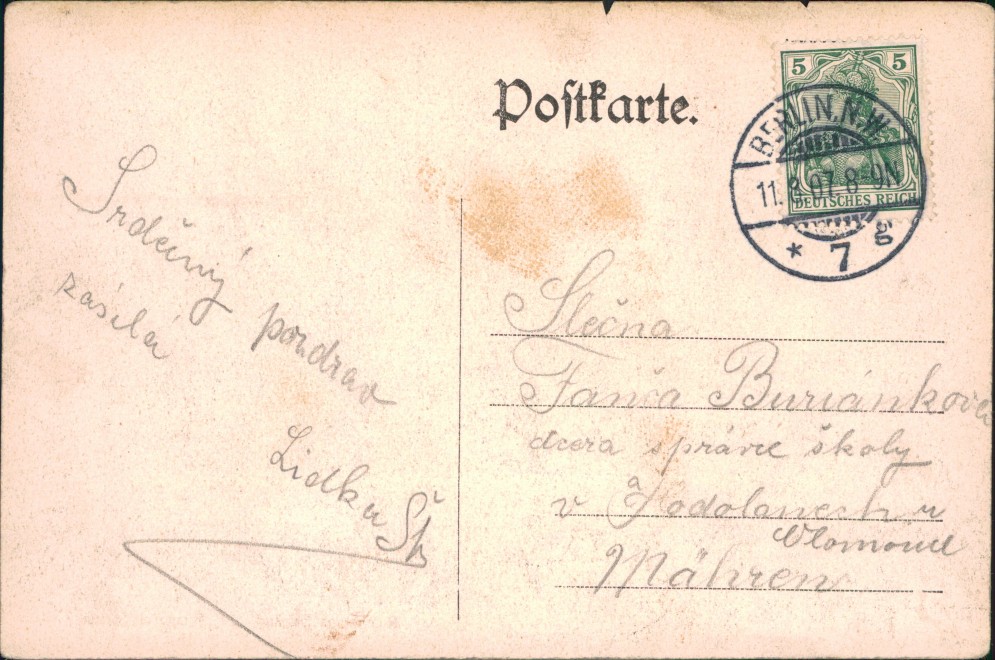 Postkarte.
5 5
DEUTSCHES REICH
BERLIN. N.W.
11. 8. 07. 8-9N
* 7 g
Srdečný pozdrav
zasílá
Lidka Št
Slečna
Fanča Buriánkova
dcera správce školy
v Hodolanech u
Olomouce
Mähren